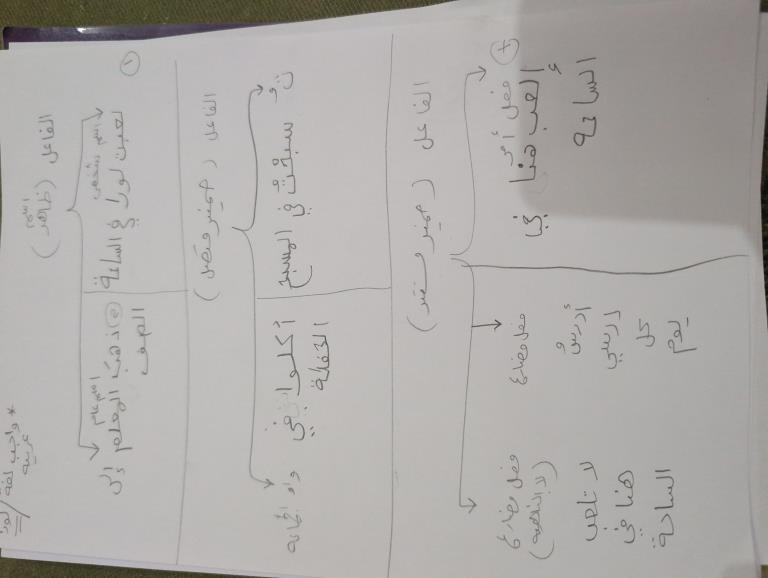 * واجب لغة / لورا
عربية
الفاعل (اسم ظاهر)
١
اسم شخص
لعبت لورا في الساحة
اسم عام
ذهب المعلم إلى
الصف
الفاعل (ضمير متصل)
تُ
سبحتُ في المسبح
واو الجماعة
أكلوا في
الحفلة
الفاعل (ضمير مستتر)
فعل أمر
إلعب هنا في
الساحة
فعل مضارع
أدرسُ
درسي
كل
يوم
فعل مضارع
(لا الناهية)
لا تلعب
هنا في
الساحة